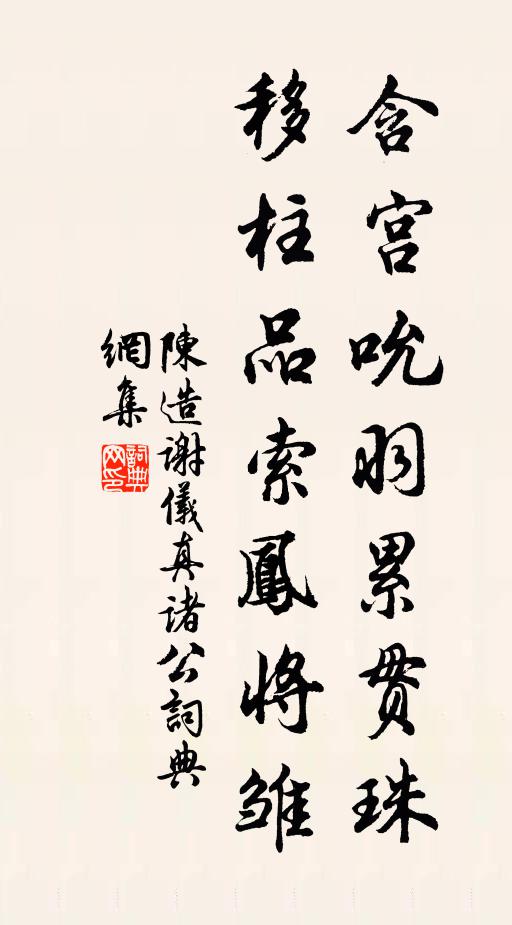 含宮吮羽累貫珠
移柱品索鳳將雏
陳造謝儀真諸公詞典
網集
詞典網印